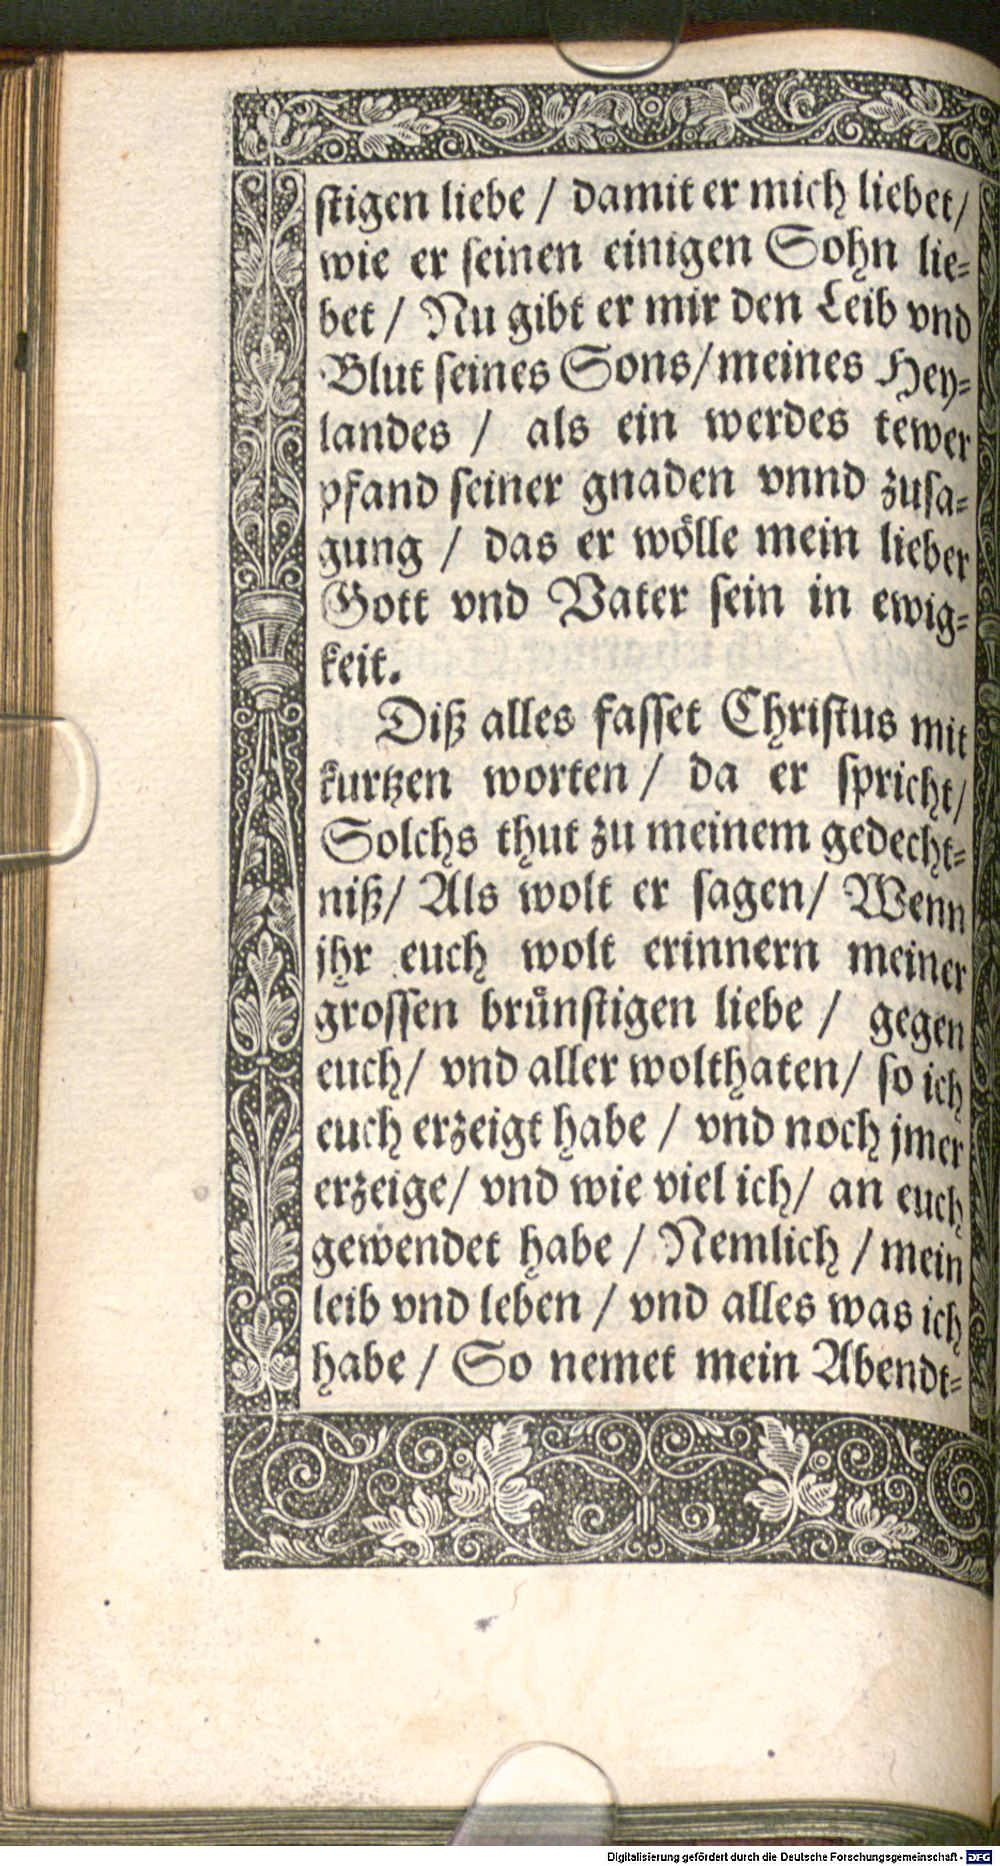 stigen liebe / damit er mich liebet/
wie er seinen einigen Sohn lie-
bet / Nu gibt er mir den Leib vnd
Blut seines Sons/ meines Hey-
landes / als ein werdes tewer
pfand seiner gnaden vnnd zusa-
gung / das er wölle mein lieber
Gott vnd Vater sein in ewig-
keit.
Diß alles fasset Christus mit
kurtzen worten / da er spricht/
Solchs thut zu meinem gedecht-
niß/ Als wolt er sagen/ Wenn
jhr euch wolt erinnern meiner
grossen brünstigen liebe / gegen
euch/ vnd aller wolthaten/ so ich
euch erzeigt habe / vnd noch jmer
erzeige/ vnd wie viel ich/ an euch
gewendet habe / Nemlich / mein
leib vnd leben / vnd alles was ich
habe / So nemet mein Abendt-
Digitalisierung gefördert durch die Deutsche Forschungsgemeinschaft - DFG